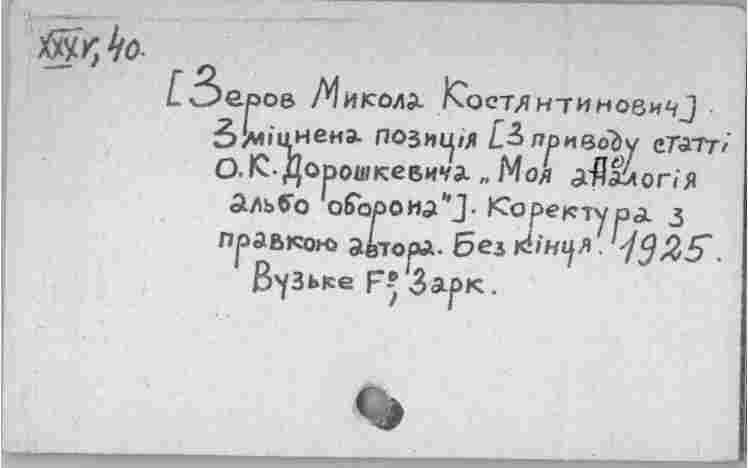 XXXV, 40.
[Зеров Микола Костянтинович].
Зміцнена позиція [З приводу статті
О.К. Дорошкевича „Моя апологія
альбо оборона"]. Коректура з
правкою автора. Без кінця. 1925.
Вузьке F°; 3арк.